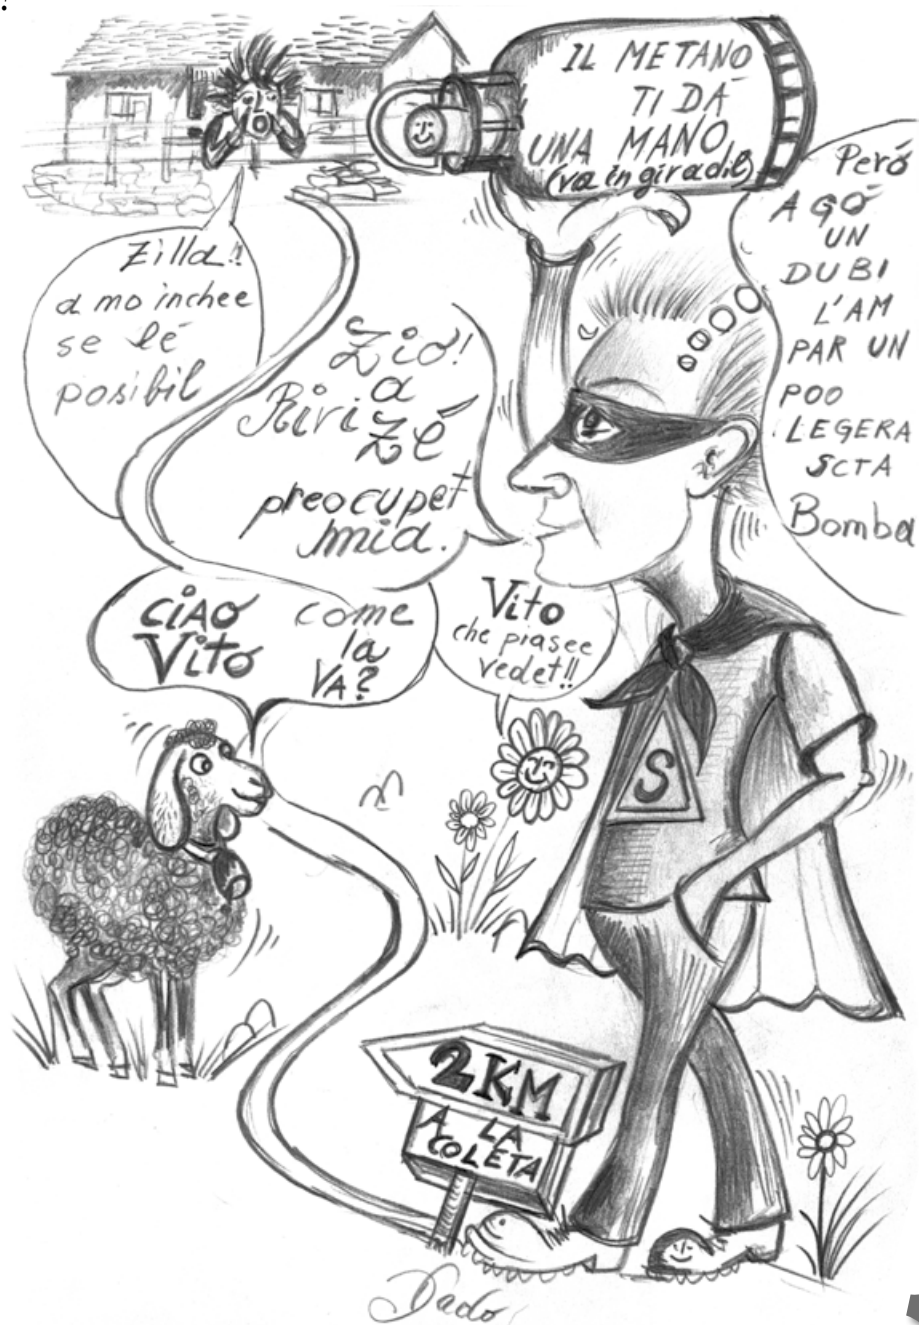 IL METANO
TI DÁ
UNA MANO
(va in giradil)
Peró
A GÓ
UN
DUBI
L'AM
PAR UN
POO
LEGERA
SCTA
Bomba
Zilla!!
a mo inchee
se lé
posibil
Zio!
a
Rivi
Zé
preocupet
mia.
CIAO
Vito
come
la
VA?
Vito
che piasee
vedet!!
S
2 KM
A LA
COLETA
Dado